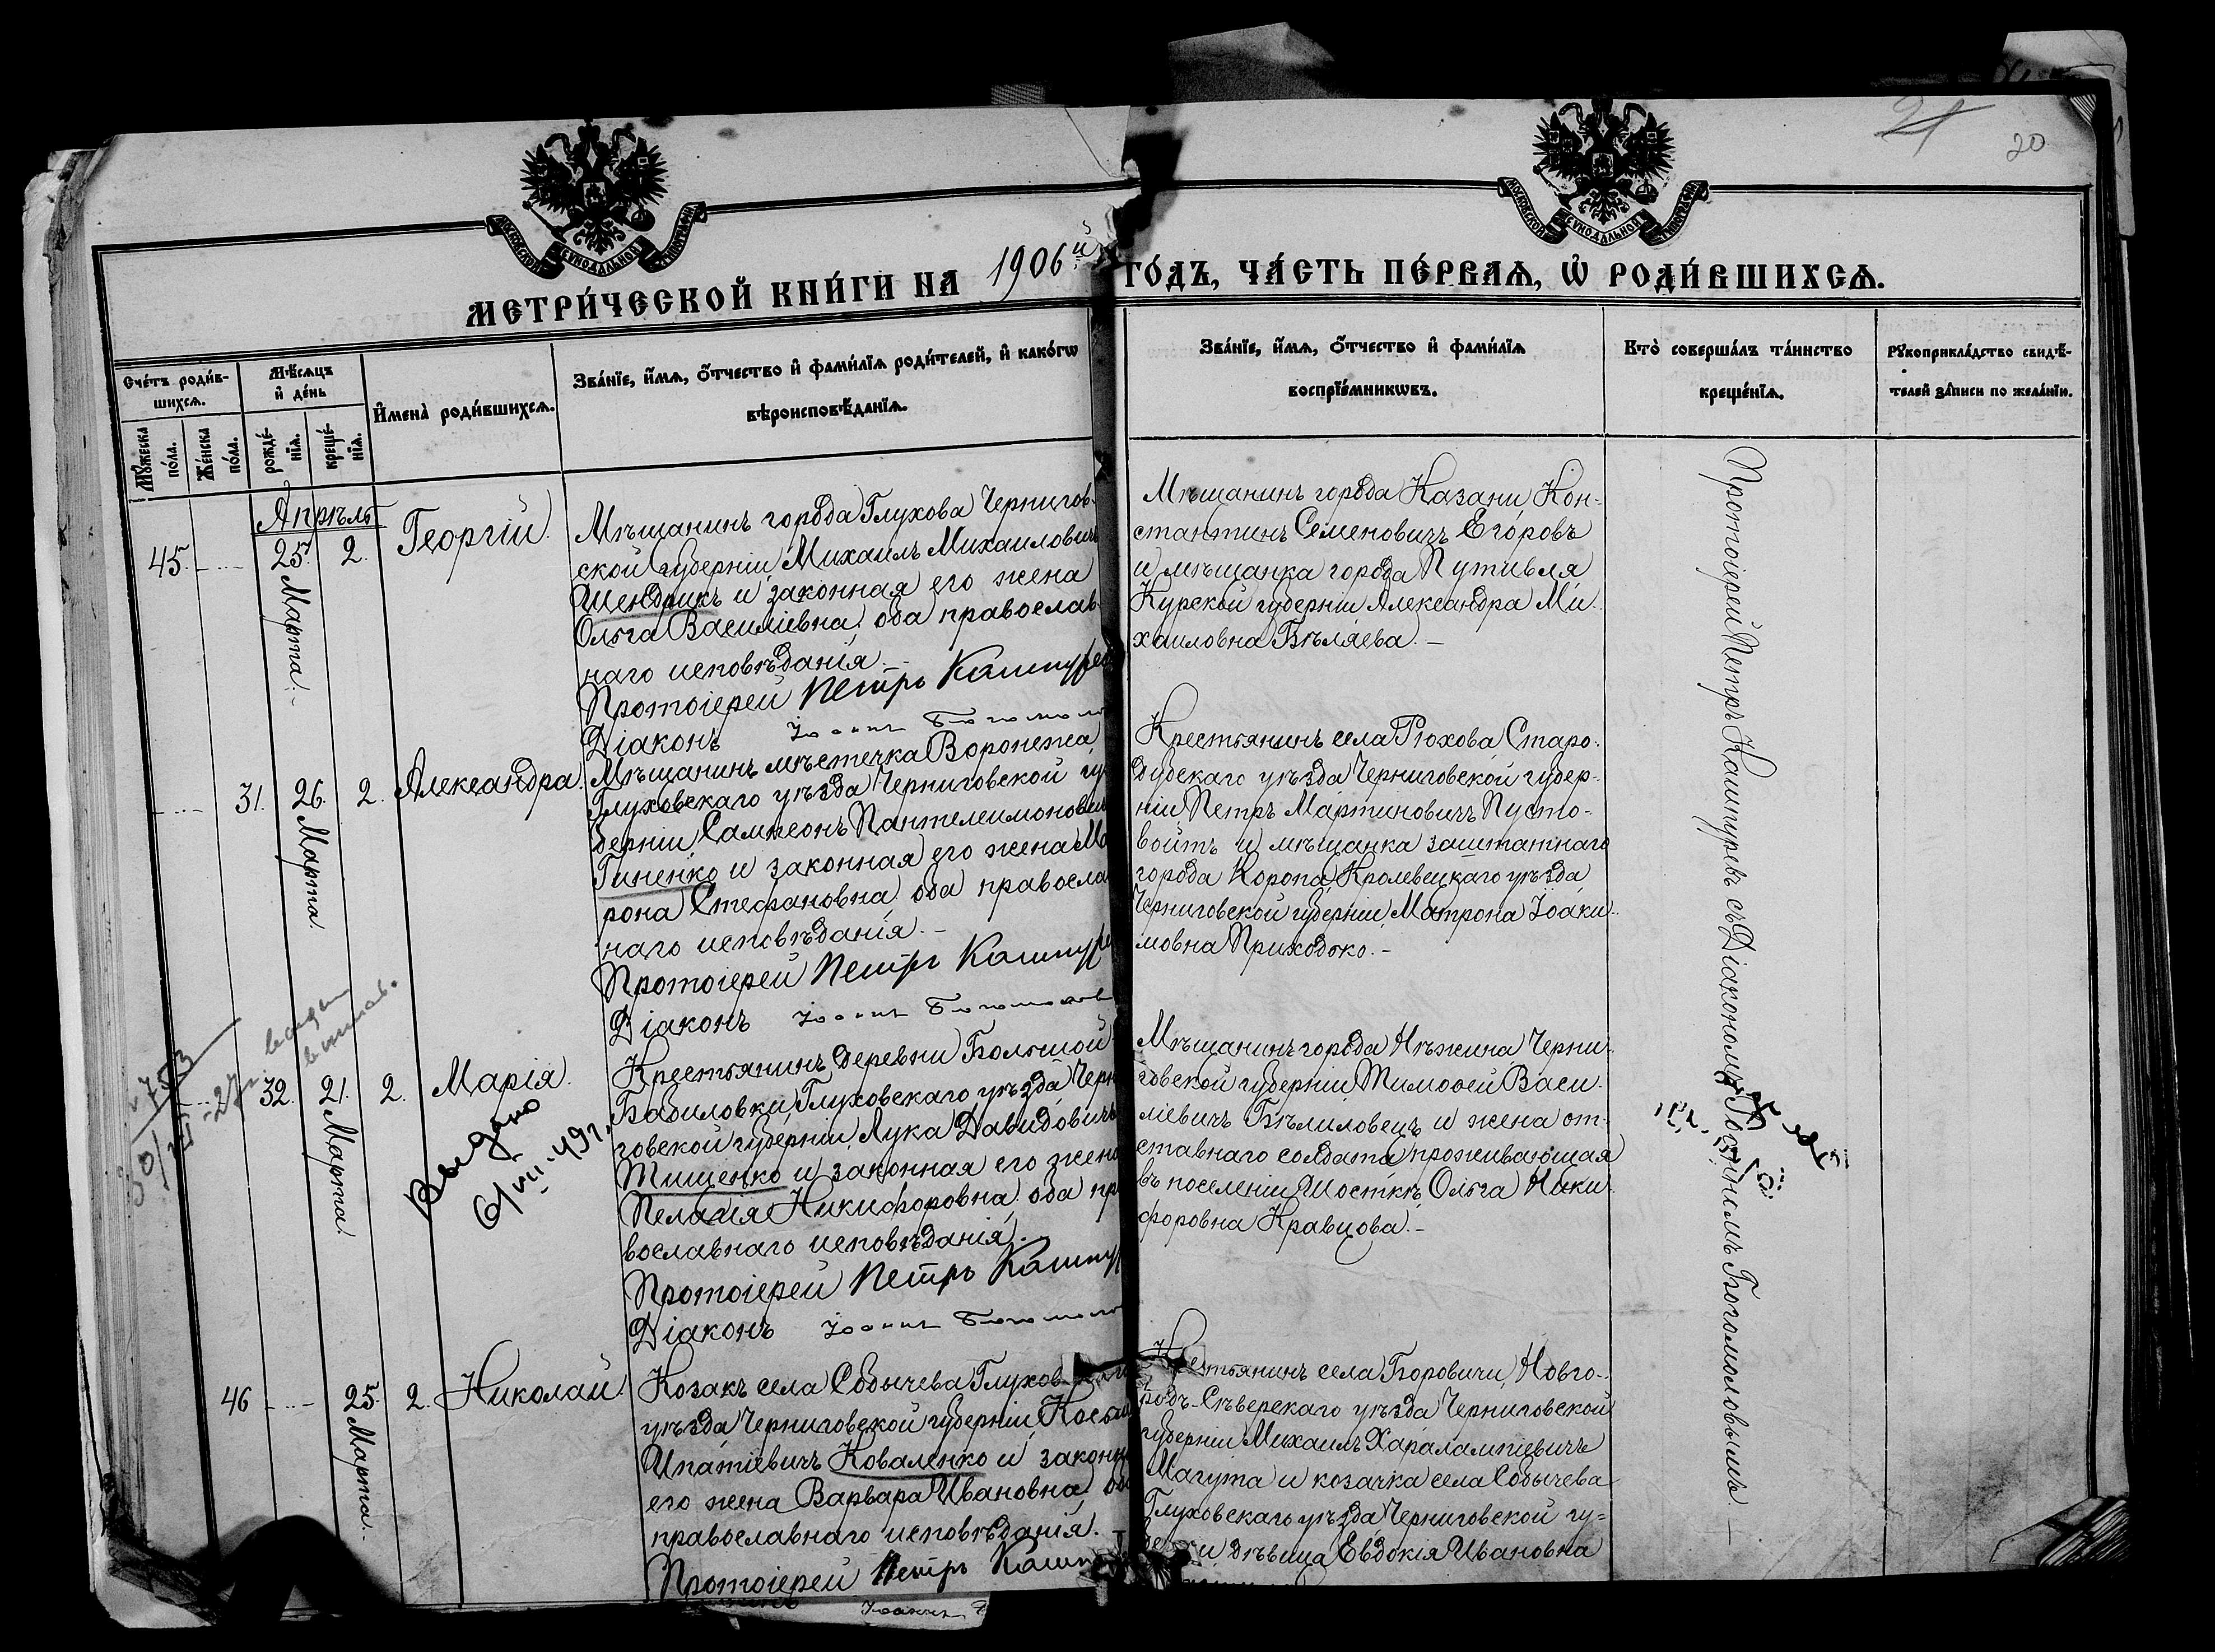 21
20
МОСКОВСКОЙ СѴНОДАЛЬНОЙ ТИПОГРАФІИ
МОСКОВСКОЙ СѴНОДАЛЬНОЙ ТИПОГРАФІИ
МЕТРИ́ЧЕСКОЙ КНИ́ГИ НА 1906й ГО́ДЪ, ЧА́СТЬ ПЕ́РВАѦ, Ѡ҆ РОДИ́ВШИХСѦ.
Сче́тъ роди́в-
шихсѧ.
Мꙋ́жеска
по́ла.
Же́нска
по́ла.
Мѣ́сѧцъ
и҆ де́нь
рожде́-
нїѧ.
креще́-
нїѧ.
И҆мена̀ роди́вшихсѧ.
Зва́нїе, и҆́мѧ, ѻ҆́тчество и҆ фами́лїѧ роди́телей, и҆ како́гѡ
вѣроисповѣ́данїѧ.
Зва́нїе, и҆́мѧ, ѻ҆́тчество и҆ фами́лїѧ
воспрїе́мникѡвъ.
Кто̀ соверша́лъ та́инство
креще́нїѧ.
Рꙋкоприкла́дство свидѣ́-
телей за́писи по жела́нїю.
Апрѣль
45.
25.
Марта.
2.
Георгій.
Мѣщанинъ города Глухова Чернигов-
ской губерніи, Михаилъ Михаиловичъ
Шендрикъ и законная его жена
Ольга Василіевна, оба православ-
наго исповѣданія.-
Протоіерей Петръ Кашпуревъ
Діаконъ Іоаннъ Богомоло
Мѣщанинъ города Казани, Кон-
стантинъ Семеновичъ Егоровъ
и мѣщанка города Путивля
Курской губерніи Александра Ми-
хаиловна Бѣляева.-
31.
26.
Марта.
2.
Александра.
Мѣщанинъ мѣстечка Воронежа,
Глуховскаго уѣзда Черниговской гу-
берніи Сампсонъ Пантелеимонович
Гиненко и законная его жена Ма
рона Стефановна, оба правосла
наго исповѣданія.-
Протоіерей Петръ Кашпуре
Діаконъ Іоаннъ Богомолов
Крестьянинъ села Рюхова Старо-
дубскаго уѣзда Черниговской губер-
ніи, Петръ Мартиновичъ Пусто-
войтъ и мѣщанка заштатнаго
города Коропа, Кролевецкаго уѣзда
Черниговской губерніи, Матрона Іоаки-
мовна Приходько.-
32.
21.
Марта.
2.
Марія.
Выдано
6/VII-49г.
Крестьянинъ деревни Большой
Бабиловки, Глуховскаго уѣзда Черн
говской губерніи, Лука Давидовичъ
Тищенко и законная его жена
Пелагія Никифоровна, оба пр
вославнаго исповѣданія.-
Протоіерей Петръ Кашпу
Діаконъ Іоаннъ Богомоло
Мѣщанинъ города Нѣжина, Черни-
говской губерніи Тимоѳей Васи-
ліевичъ Бѣлиловецъ и жена от-
ставнаго солдата, проживающая
въ поселеніи Шосткѣ, Ольга Ники-
форовна Кравцова.-
46
25.
Марта.
2.
Николай.
Козакъ села Собычева Глухов
уѣзда Черниговской губерніи, Косьм
Ипатіевичъ Коваленко и законн
его жена Варвара Ивановна, об
православнаго исповѣданія.
Протоіерей Петръ Кашп
Крестьянинъ села Боровичи, Новго-
родъ-Сѣверскаго уѣзда Черниговской
губерніи Михаилъ Харалампіевичъ
Магута и козачка села Собычева
Глуховскаго уѣзда Черниговской гу-
берніи дѣвица Евдокія Ивановна
Протоіерей Петръ Кашпуревъ съ Діакономъ Іоанномъ Богомоловымъ.-